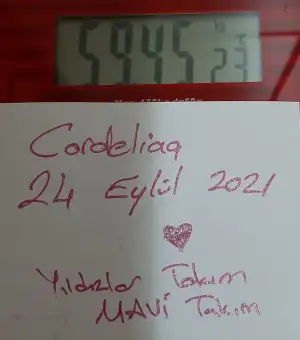 5945 kg
23
Cordeliaq
24 Eylül 2021
Yıldızlar Takım
MAVİ Takım